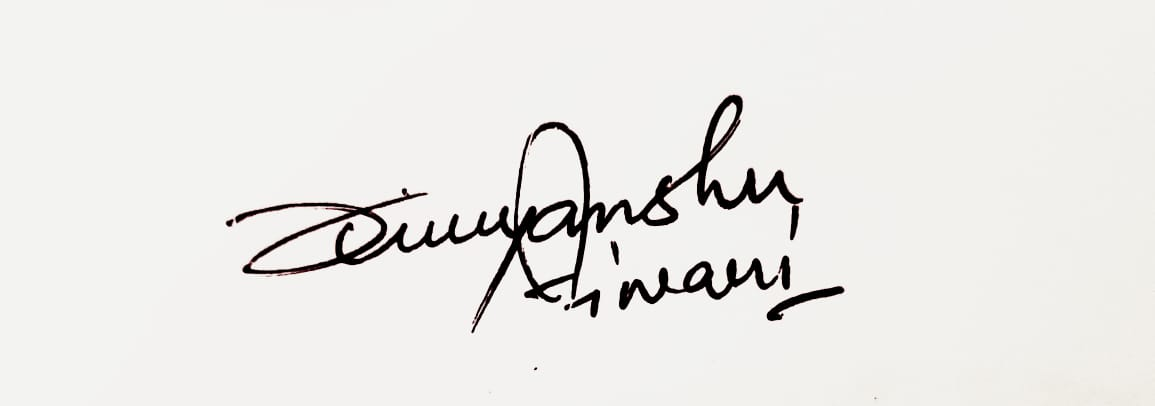 Divyanshu
Tiwari